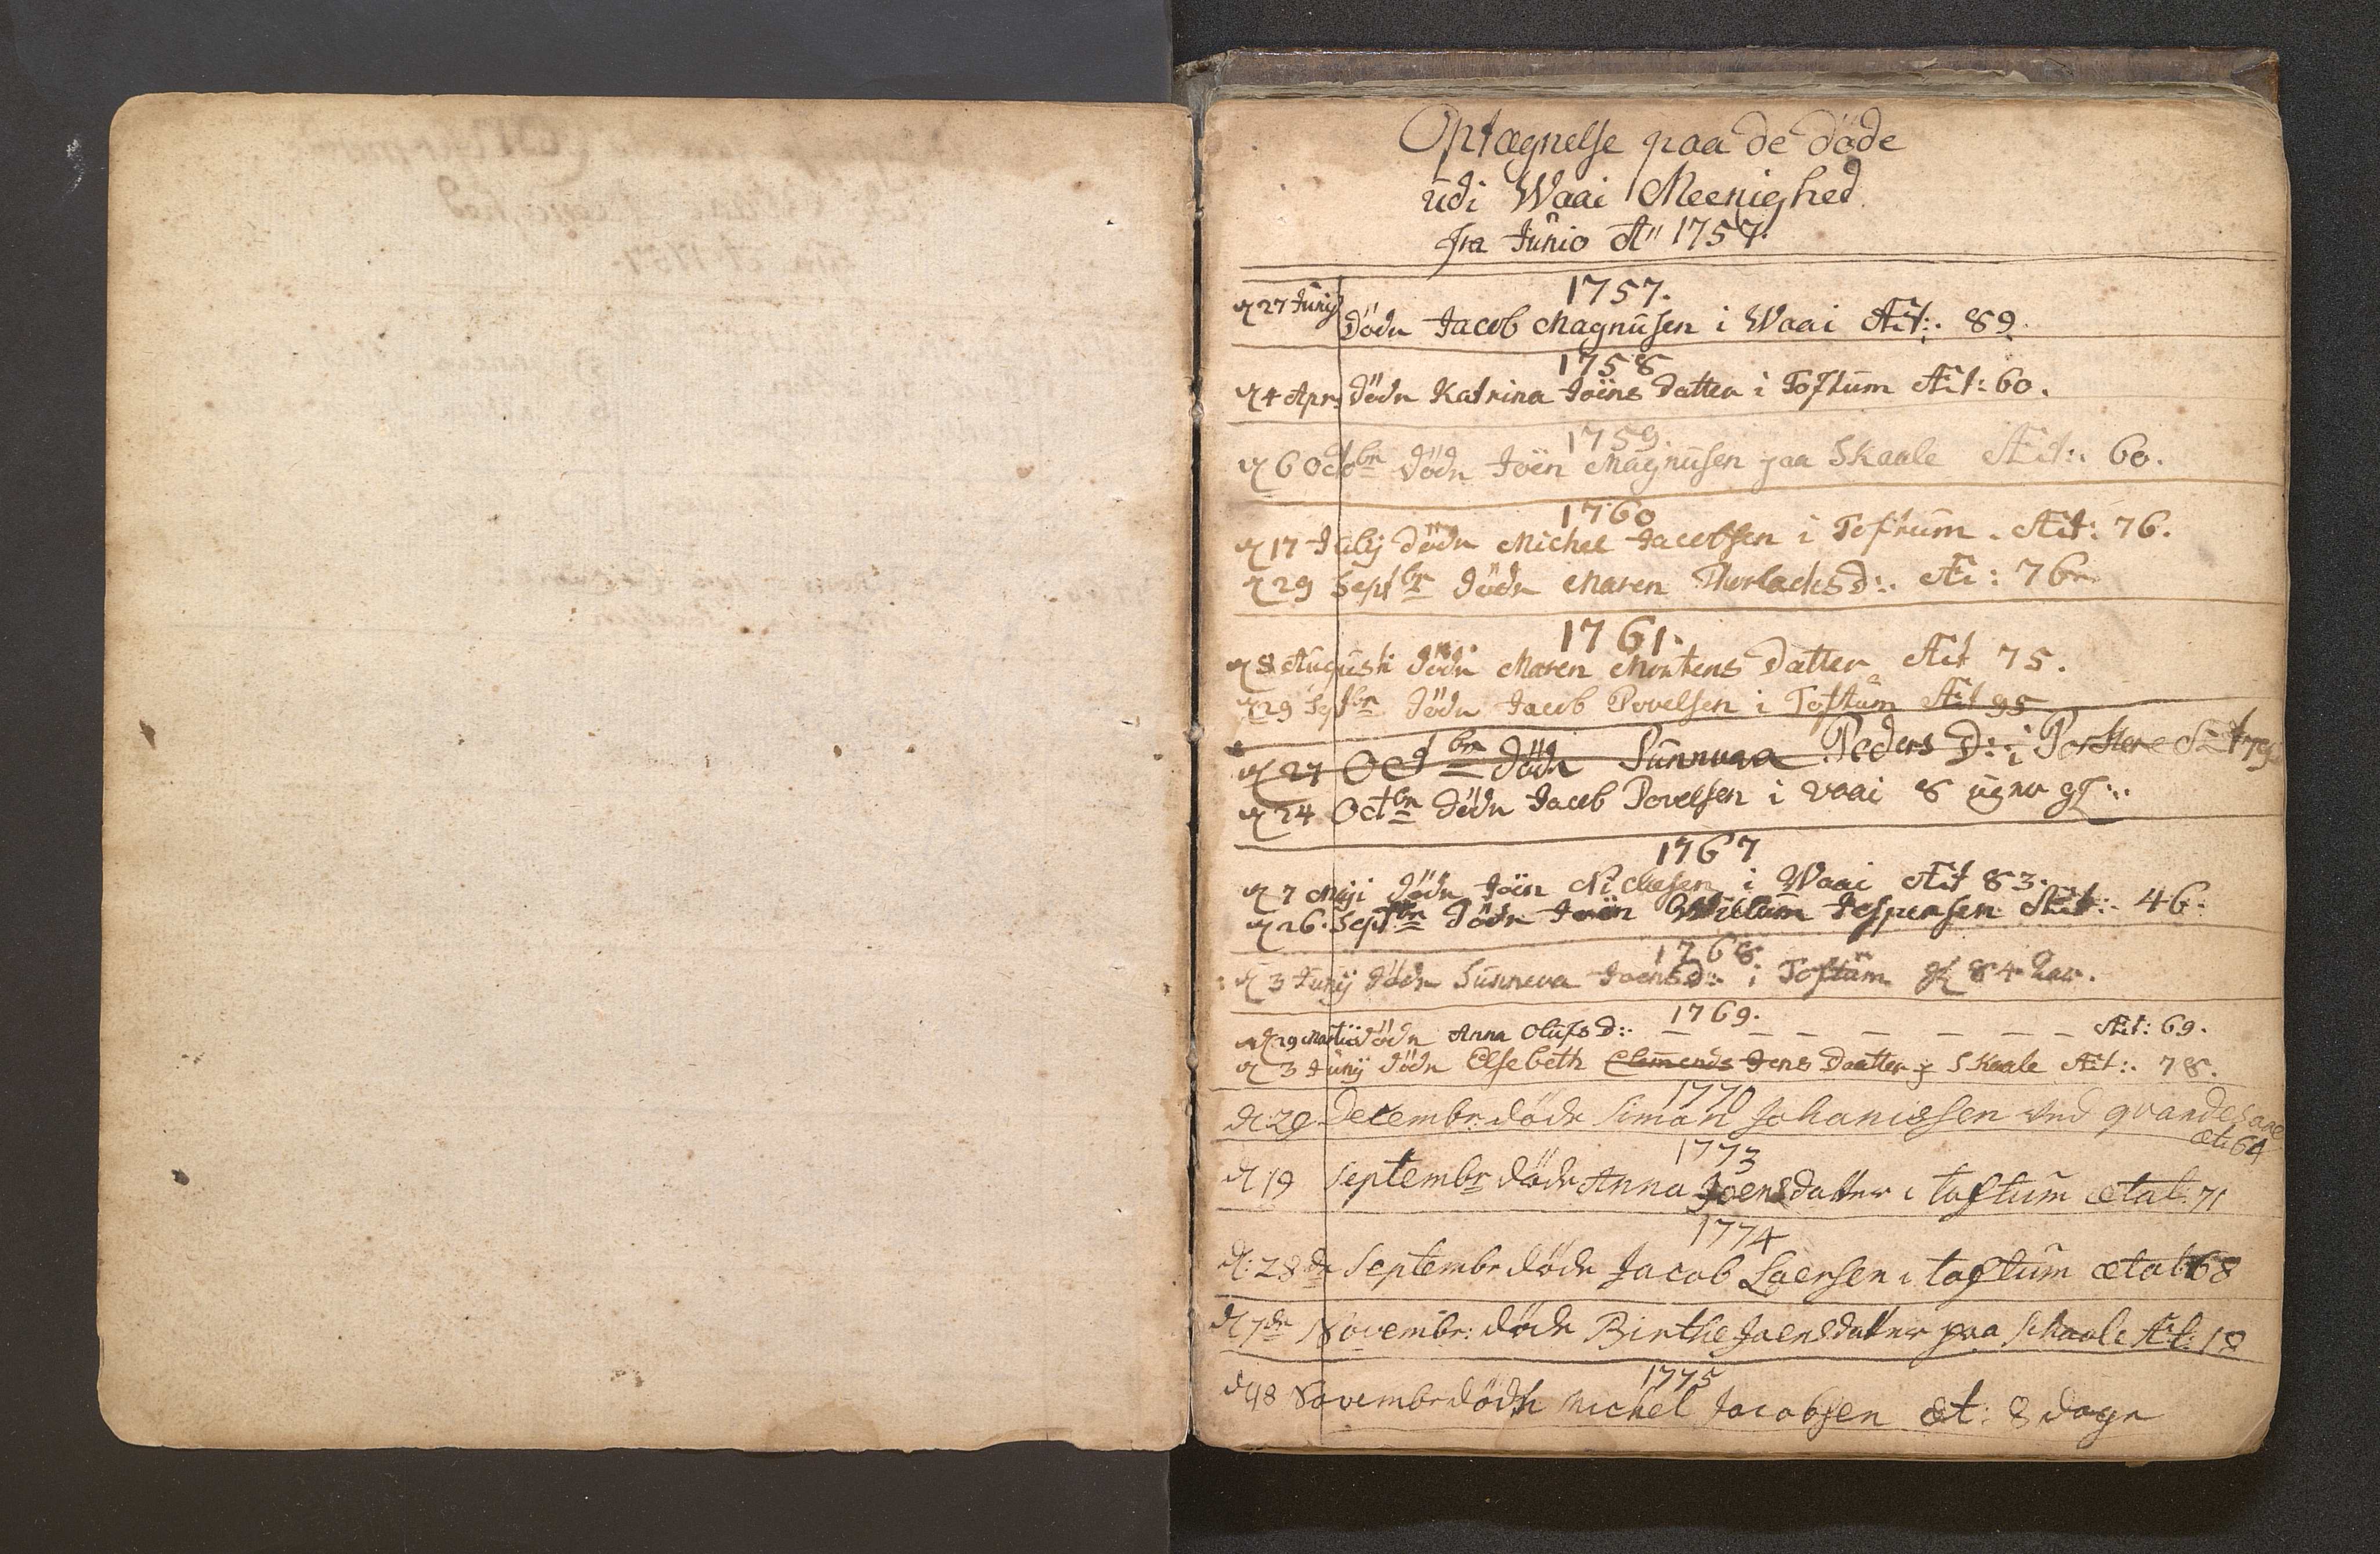 Optægnelse paa de døde
udi Waai Meenighed
fra Junio Aº 1757.
1757.
d 27 Junij døde Jacob Magnusen i Waai Æt: 89.
1758
d 4 Apr: døde Katrina Joens Datter i Toftum Æt: 60.
1759.
d 6 Octobr døde Joen Magnusen paa Skaale Æt: 60.
1760
d 17 Julij døde Michel Jacobsen i Toftum. Æt: 76.
d 29 Septbr døde Maren Thorlachs d: Æt: 76
1761.
d 8 Augusti døde Maren Mortens Datter Æt 75.
d 29 Septbr døde Jacob Povelsen i Toftum Æt 95
d 27 Octbr døde Sunnuva Peders D: i Porkere Æt 79
d 24 Octbr døde Jacob Povelsen i Vaai 8 uger gl:
1767
d 7 Maji døde Joen Nichelsen i Waai Æt 83.
d 26. Septbr døde Joen Willum Jespersen Æt: 46.
1768
d 3 Junij døde Sunneva Joensd: i Toftum gl 84 aar.
1769.
d 29 Martii døde Anna Olufs d: — — — — — — — Æt: 69.
d 3 Junij døde Elsebeth Clemends Jens Daatter p Skaale Æt: 78.
1770
d 29 Decembr: døde Simon Johanissen ved
æt: 64
1773
d 19 Septembr døde Anna Joensdatter i toftum ætat: 71
1774
d: 28de Septembr døde Jacob Laersen i toftum ætat: 68
d 7de Novembr: døde Birthe Joensdatter paa Skaale Æt: 18
1775
d 18 Novembr døde Michel Jacobsen æt: 8 dage